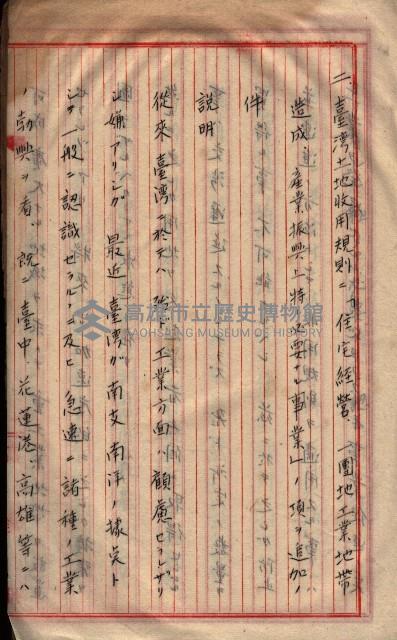 二、臺灣土地收用規則ニ「住宅經營、一團地工業地帶
造成、産業振興上特ニ必要ナル事業」ノ項ヲ追加ノ
件
説明
從來臺灣ニ於テハ殆ト工業方面ハ顧慮セラレザリ
シ嫌アリシガ最近臺灣ガ南支南洋ノ據点ト
シテ一般ニ認識セラルヽニ及ビ急速ニ諸種ノ工業
ノ勃興ヲ看、既ニ臺中、花蓮港、高雄等ニハ
高雄市立歷史博物館
KAOHSIUNG MUSEUM OF HISTORY